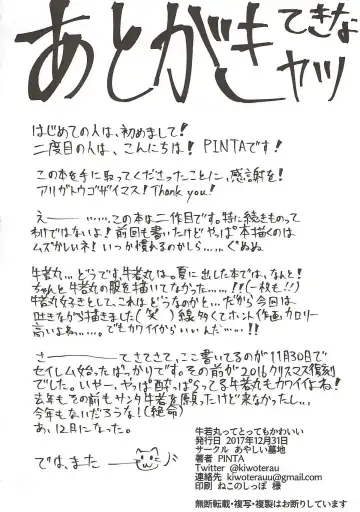 あとがき てきな
ヤツ
はじめての人は、初めまして!
二度目の人は、こんにちは! PINTAです!
この本を手に取ってくださったことに、感謝を!
アリガトウゴザイマス! Thank you!
えー ……この本は二作目です。特に続きものって
わけではないよ! 前回も書いたけどやっぱ本描くのは
ムズかしいネ! いつか慣れるのかしら……ぐぬぬ
牛若丸…どうです牛若丸は。夏に出した本では、なんと!
ちゃんと牛若丸の服を描いてなかった……!!(一枚も!!)
牛若丸好きとして、これはどうなのかと…だから今回は
吐きながら描きました(笑)線多くてホント作画カロリー
高いよね……。でもカワイイからいいんだ……!!
さー てさてさて、ここ書いてるのが11月30日で
セイレム始ったばっかりです。その前が2016クリスマス復刻
でした。いやー、やっぱ酔っぱらってる牛若丸もカワイイよね!
去年もその前もサンタ牛若を願ったけど来なかったし…
今年もないだろうな!(絶命)
あ、12月になった。
では、また
牛若丸ってとってもかわいい
発行日 2017年12月31日
サークル あやしい墓地
著者 PINTA
Twitter @kiwoterau
連絡先 kiwoterauu@gmail.com
印刷 ねこのしっぽ 様
無断転載・複写・複製はお断りしています